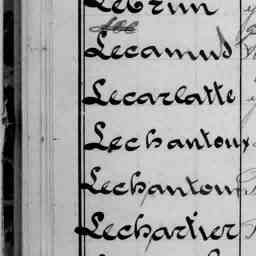 Lebrun
Lecamus
Lecarlatte
Lechantoux
Lechantoux
Lechartier